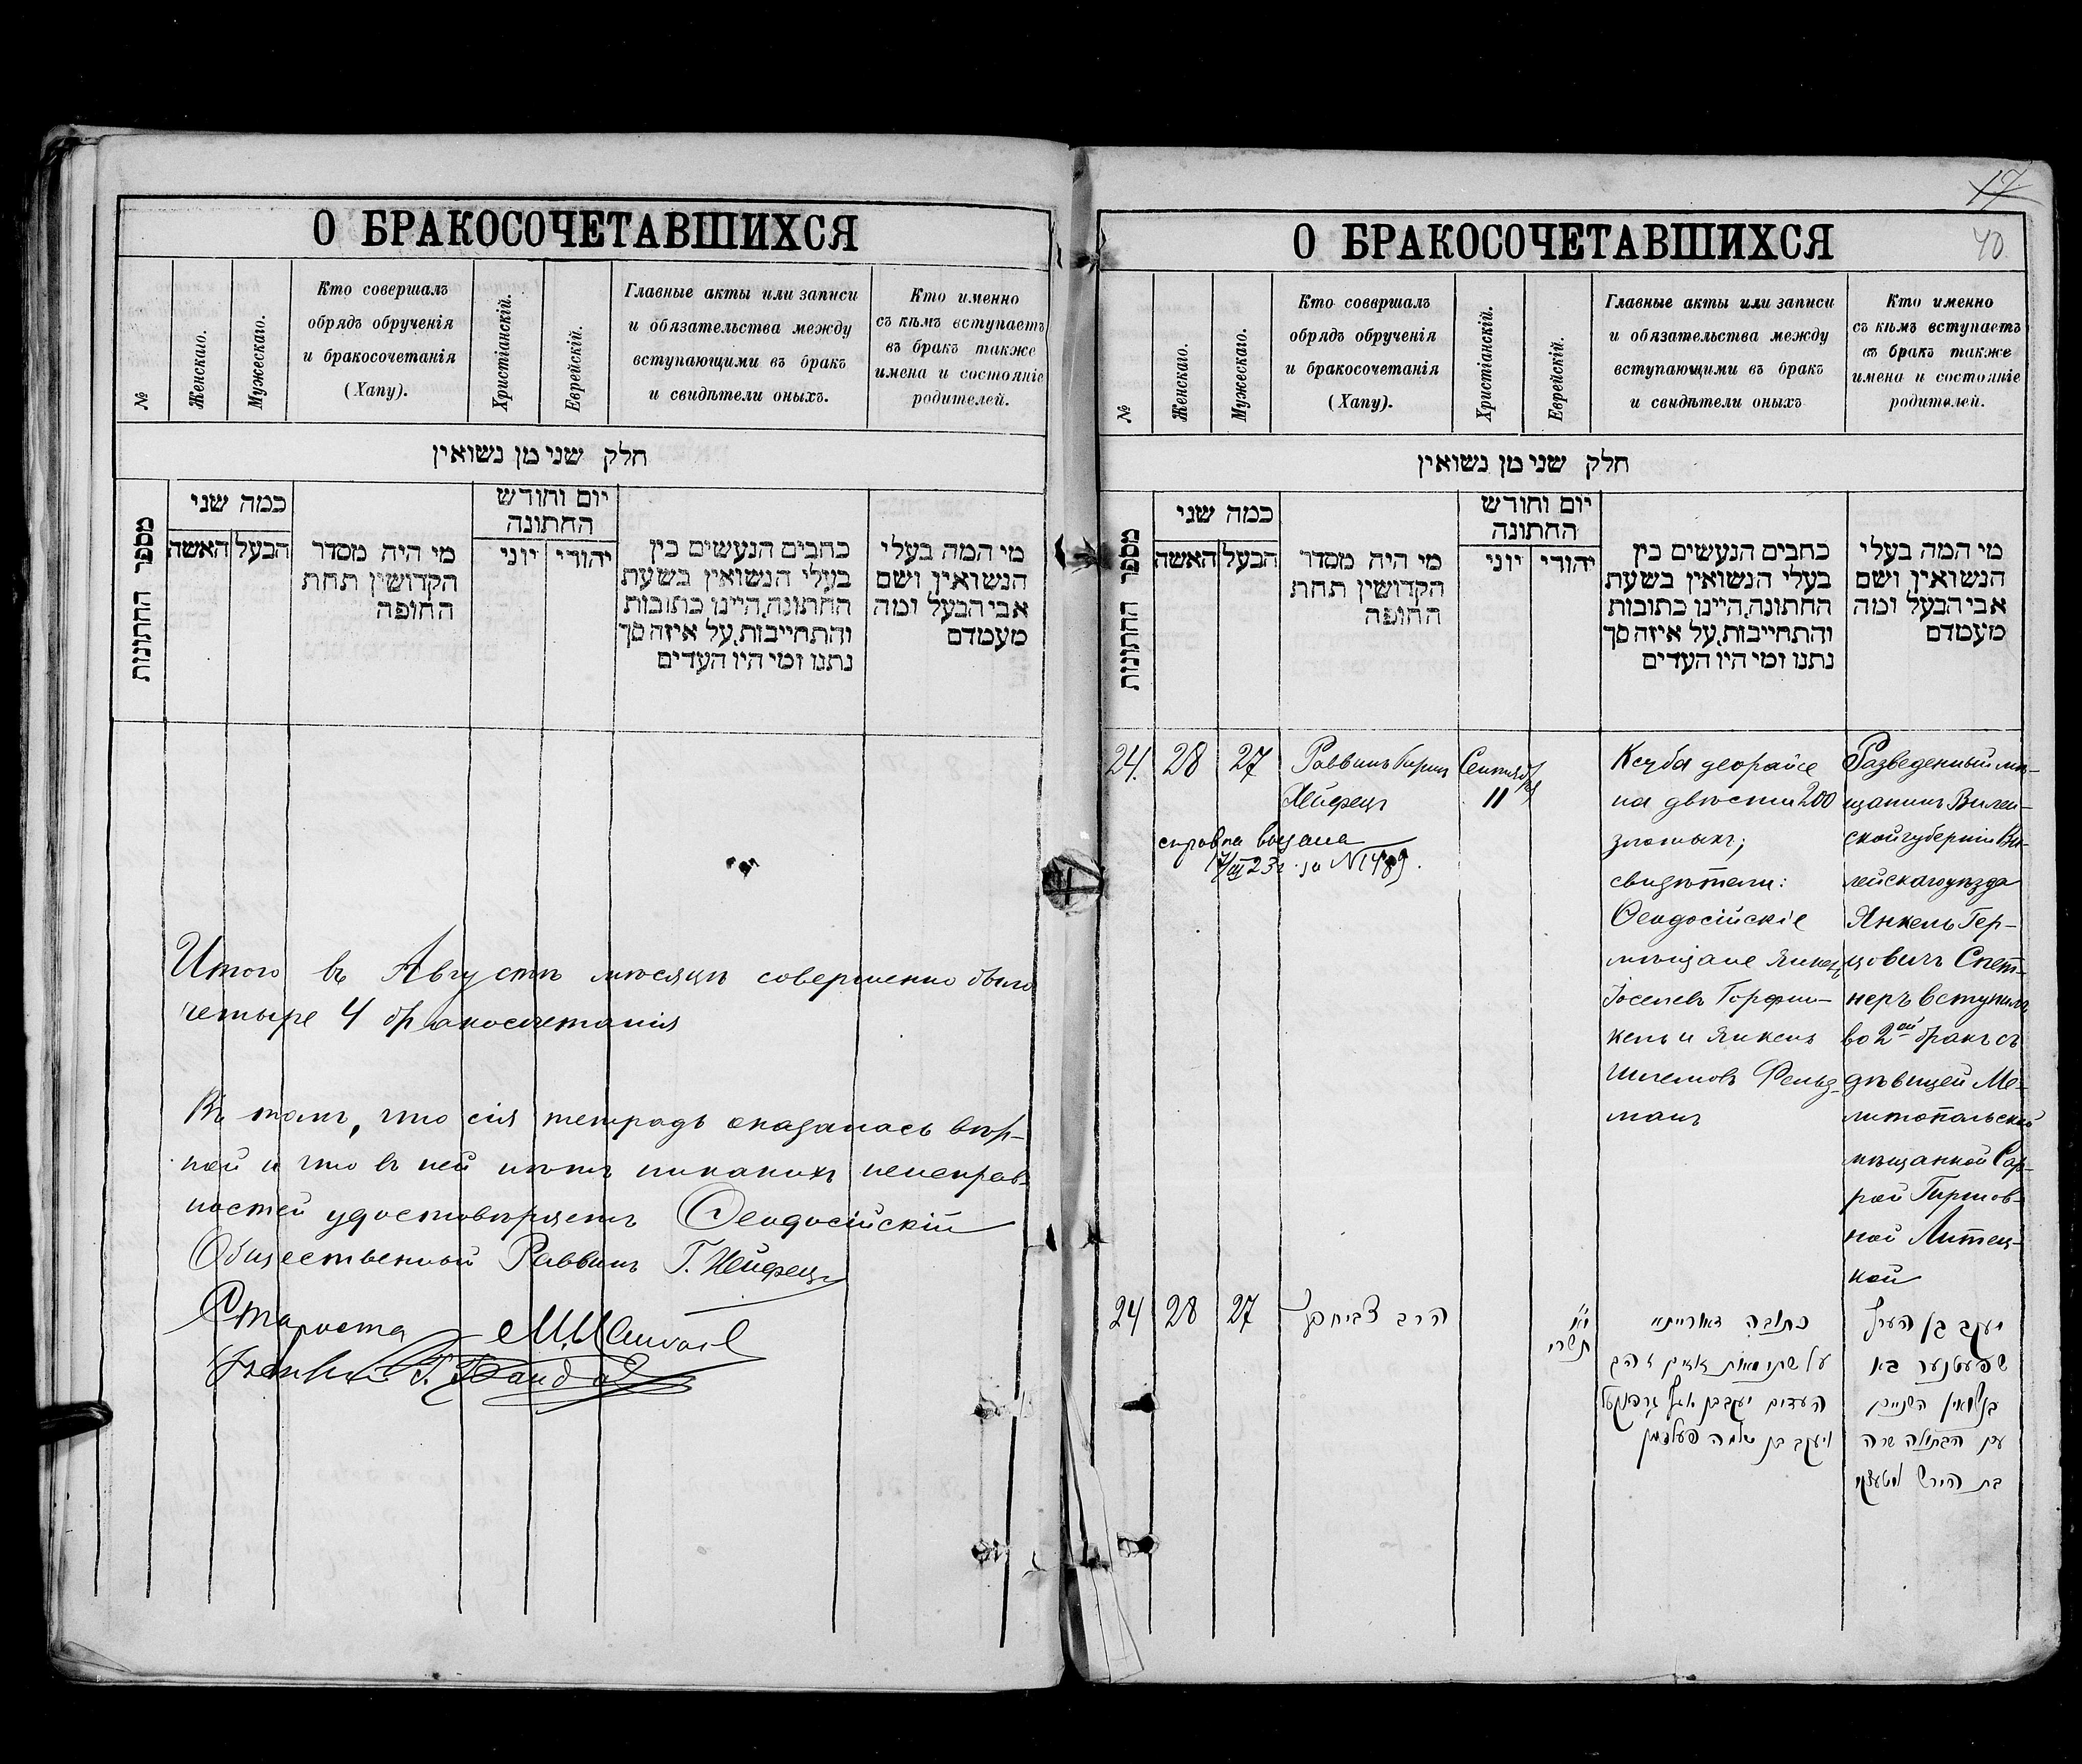 О БРАКОСОЧЕТАВШИХСЯ
№
Женскаго.
Мужескаго.
Кто совершалъ
обрядъ обрученія
и бракосочетанія
(Хапу).
Христіанскій.
Еврейскій.
Главные акты или записи
и обязательства между
вступающими въ бракъ
и свидѣтели оныхъ.
Кто именно
съ кѣмъ вступаетъ
въ бракъ также
имена и состояніе
родителей.
חלק שני מן נשואין
מספר החתונות
כמה שני
האשה
הבעל
מי היה מסדר
הקדושין תחת
החופה
יום וחודש
החתונה
יוני
יהודי
כתבים הנעשים בין
בעלי הנשואין בשעת
החתונה, היינו כתובות
והתחייבות, על איזה סך
נתנו ומי היו העדים
מי המה בעלי
הנשואין ושם
אבי הבעל ומה
מעמדם
Итого въ Августѣ мѣсяцѣ совершено было
четыре 4 бракосочетанія
Въ томъ, что сія тетрадь оказалась вѣр-
ной и что въ ней нѣтъ никакихъ неисправ-
ностей удостовѣряетъ Ѳеодосійскій
Общественный Раввинъ Г. Хейфецъ
Староста
17
40
О БРАКОСОЧЕТАВШИХСЯ
№
Женскаго.
Мужескаго.
Кто совершалъ
обрядъ обрученія
и бракосочетанія
(Хапу).
Христіанскій.
Еврейскій.
Главные акты или записи
и обязательства между
вступающими въ бракъ
и свидѣтели оныхъ
Кто именно
съ кѣмъ вступаетъ
въ бракъ также
имена и состояніе
родителей.
חלק שני מן נשואין
מספר החתונות
כמה שני
האשה
הבעל
מי היה מסדר
הקדושין תחת
החופה
יום וחודש
החתונה
יוני
יהודי
כתבים הנעשים בין
בעלי הנשואין בשעת
החתונה, היינו כתובות
והתחייבות, על איזה סך
נתנו ומי היו העדים
מי המה בעלי
הנשואין ושם
אבי הבעל ומה
מעמדם
24.
28
27
Раввинъ Гиршъ
Хейфецъ
Сентября
11
справка выдана
7/III 23 г. за N 1489.
Ксуба деорайсе
на двѣсти 200
злотыхъ;
свидѣтели:
Ѳеодосійскіе
мѣщане Янкель
Іоселевъ Горфин-
кель и Янкель
Шлемовъ Фельд-
манъ
Разведенный мѣ-
щанинъ Вилен-
ской губерніи Ви-
лейскаго уѣзда
Янкель Гер-
цовичъ Спект-
неръ вступилъ
во 2ой бракъ съ
дѣвицей Ме-
литопольской
мѣщанкой Сар-
рой Гиршов-
ной Литец-
кой
24
28
27
הרב
יא
תשרי
כתובה דאורייתא
על שתי מאות זהב
העדים יעקב בן
ויעקב בן שלמה פעלדמן
יעקב בן הערץ
שפעטנער בא
בנשואין השניים
עם הבתולה שרה
בת הירש